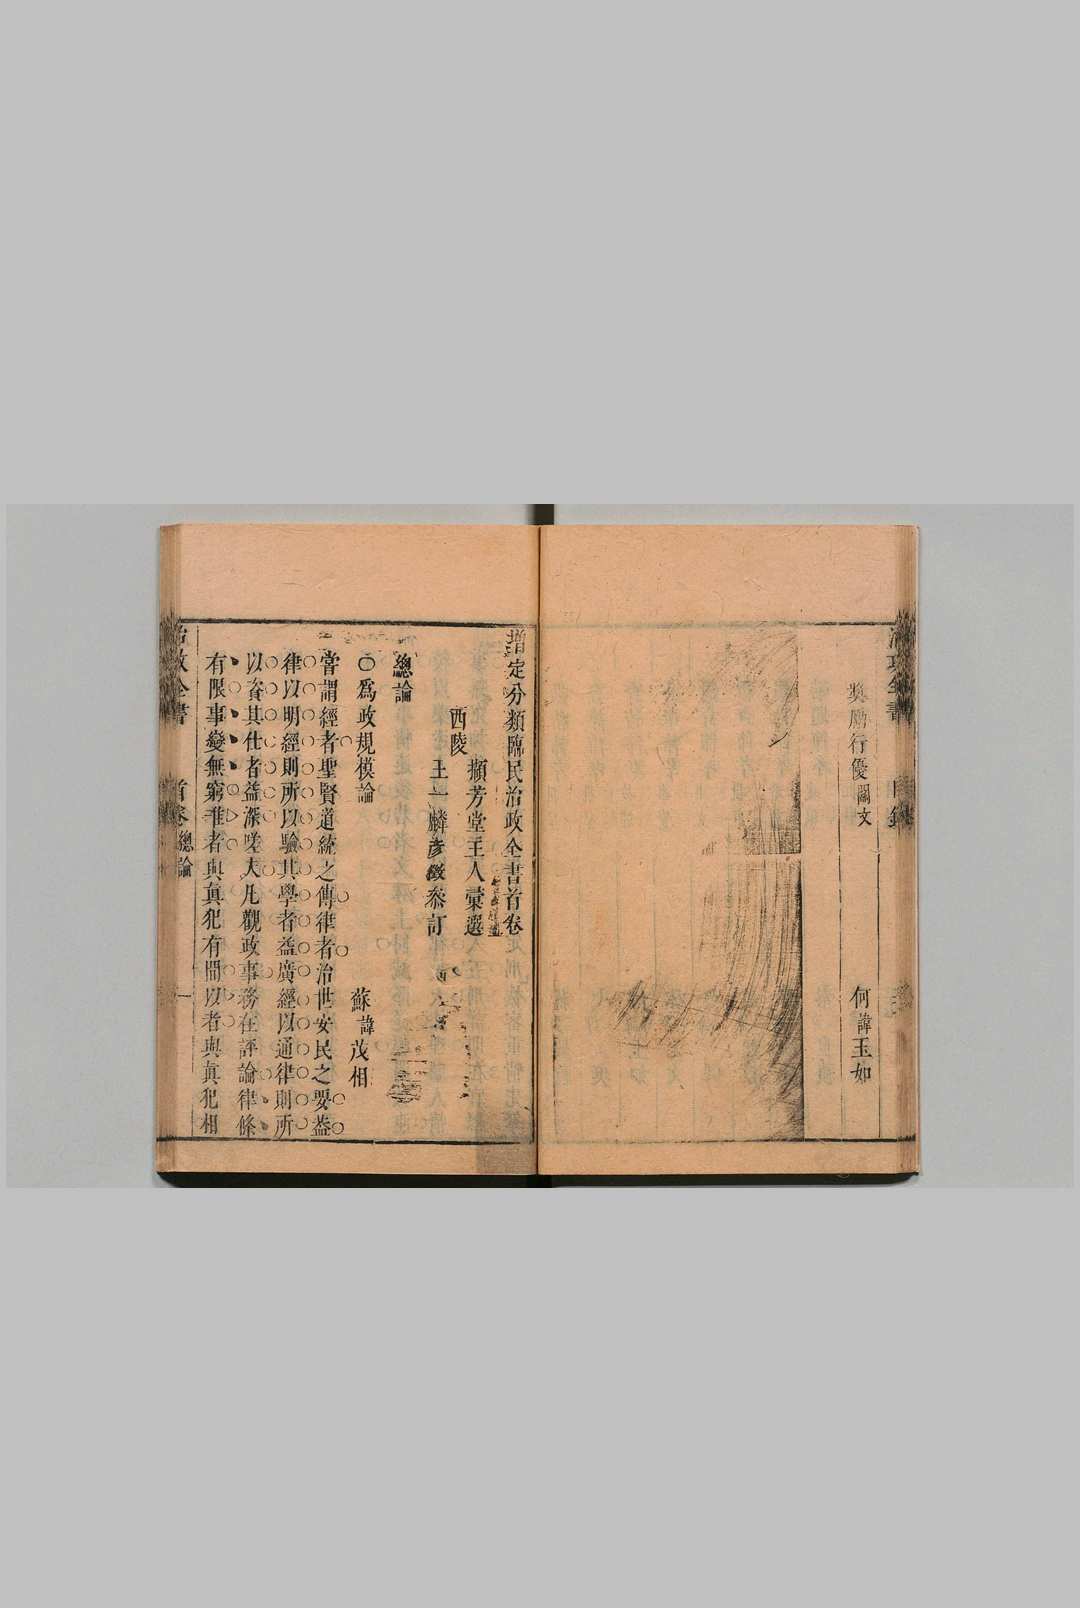 治政全書 目錄
獎勵行優關文 何諱玉如
增定分類臨民治政全書首卷
西陵
擷芳堂主人彙選
王一麟彥徵叅訂
總論
○爲政規模論 蘇諱茂相
嘗謂經者聖賢道統之傳律者治世安民之要葢
律以明經則所以驗其學者益廣經以通律則所
以資其仕者益深嗟夫凡觀政事務在評論律條
有限事變無窮准者與眞犯有間以者與眞犯相
治政全書 首卷 總論 一